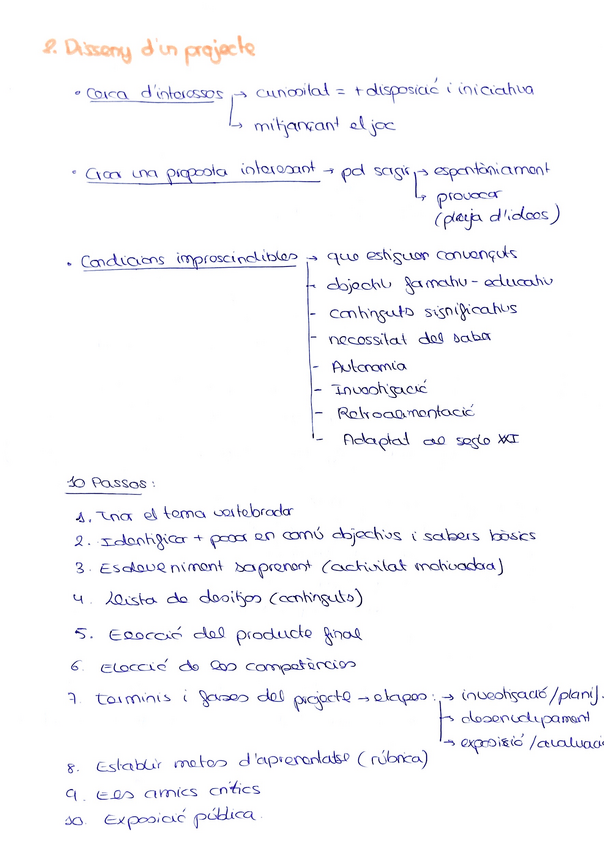 2. Disseny d'un projecte
• Cerca d'interessos → curiositat = + disposició i iniciativa
→ mitjançant el joc
• Crear una proposta interessant → pot sorgir → espontàniament
→ provocar
(pluja d'idees)
• Condicions imprescindibles → que estiguen convençuts
- objectiu formatiu - educatiu
- continguts significatius
- necessitat del saber
- Autonomia
- Investigació
- Retroalimentació
- Adaptat al segle XXI
10 Passos:
1. Triar el tema vertebrador
2. Identificar + posar en comú objectius i sabers bàsics
3. Esdeveniment sorprenent (activitat motivadora)
4. Llista de desitjos (continguts)
5. Elecció del producte final
6. Elecció de les competències
7. Terminis i fases del projecte → etapes: → investigació/planif.
→ desenvolupament
→ exposició/avaluaci
8. Establir metes d'aprenentatge (rúbrica)
9. Els amics crítics
10. Exposició pública.